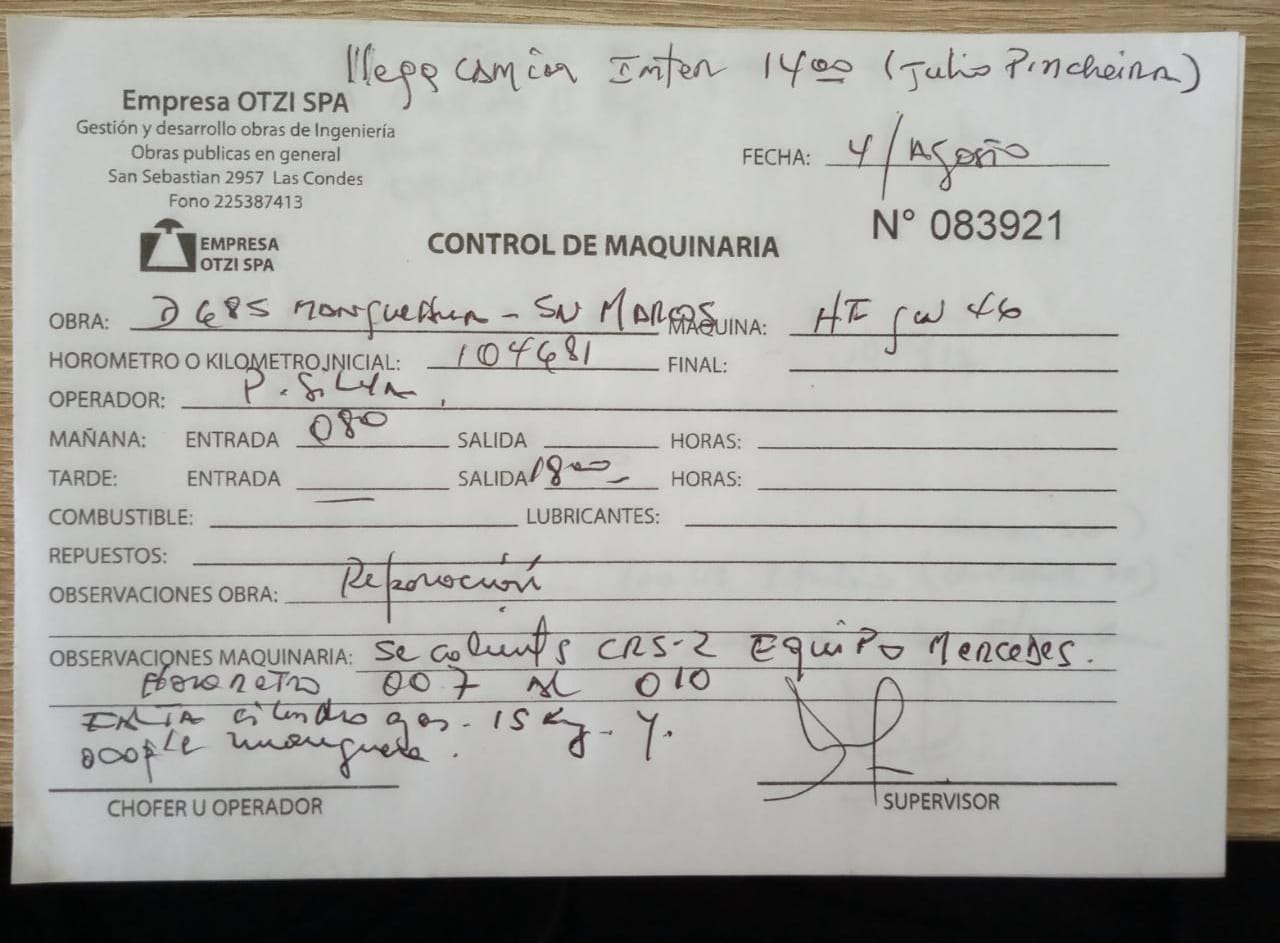 llega camion Inter 1400 (Julio Pincheira)
Empresa OTZI SPA
Gestión y desarrollo obras de Ingeniería
Obras publicas en general
San Sebastian 2957 Las Condes
Fono 225387413
FECHA: 4/Agosto
N° 083921
EMPRESA
OTZI SPA
CONTROL DE MAQUINARIA
OBRA: D 685 - SN MARCOS MAQUINA: 46
HOROMETRO O KILOMETRO INICIAL: 104681 FINAL:
OPERADOR: P. Silva
MAÑANA: ENTRADA 080 SALIDA HORAS:
TARDE: ENTRADA SALIDA 1800 HORAS:
COMBUSTIBLE: LUBRICANTES:
REPUESTOS:
OBSERVACIONES OBRA: Reparación
OBSERVACIONES MAQUINARIA: Se calienta CRS-2 Equipo Mercedes.
Horometro 007 AL 010
FALTA cilindro gas. 15 Kg. y.
acople manguera.
CHOFER U OPERADOR
SUPERVISOR